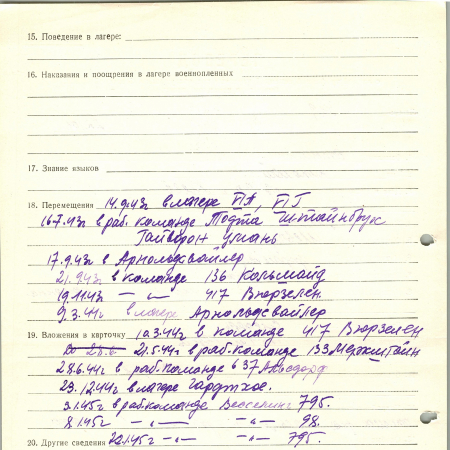 15. Поведение в лагере:
16. Наказания и поощрения в лагере военнопленных
17. Знание языков
18. Перемещения 14.9.43г в лагере VI A, VI Г
16.7.43г в раб. команде Тодта Штайнбрук
Гайворон Умань
17.9.43г в Арнольдсвайлер
21.9.43г в команде 136 Кольшайд
19.11.43г —"— 417 Вюрзелен
9.3.44г в лагере Арнольдсвайлер
19. Вложения в карточку 10.3.44г в команде 417 Вюрзелен
21.5.44г в раб. команде 133 Меркштайн
28.6.44г в раб. команде 637 Альсдорф
23.12.44г в лагере Гардтхое.
3.1.45г в раб. команде Весселинг 795.
8.1.45г —"— —"— 98.
20. Другие сведения 22.1.45г —"— —"— 795.